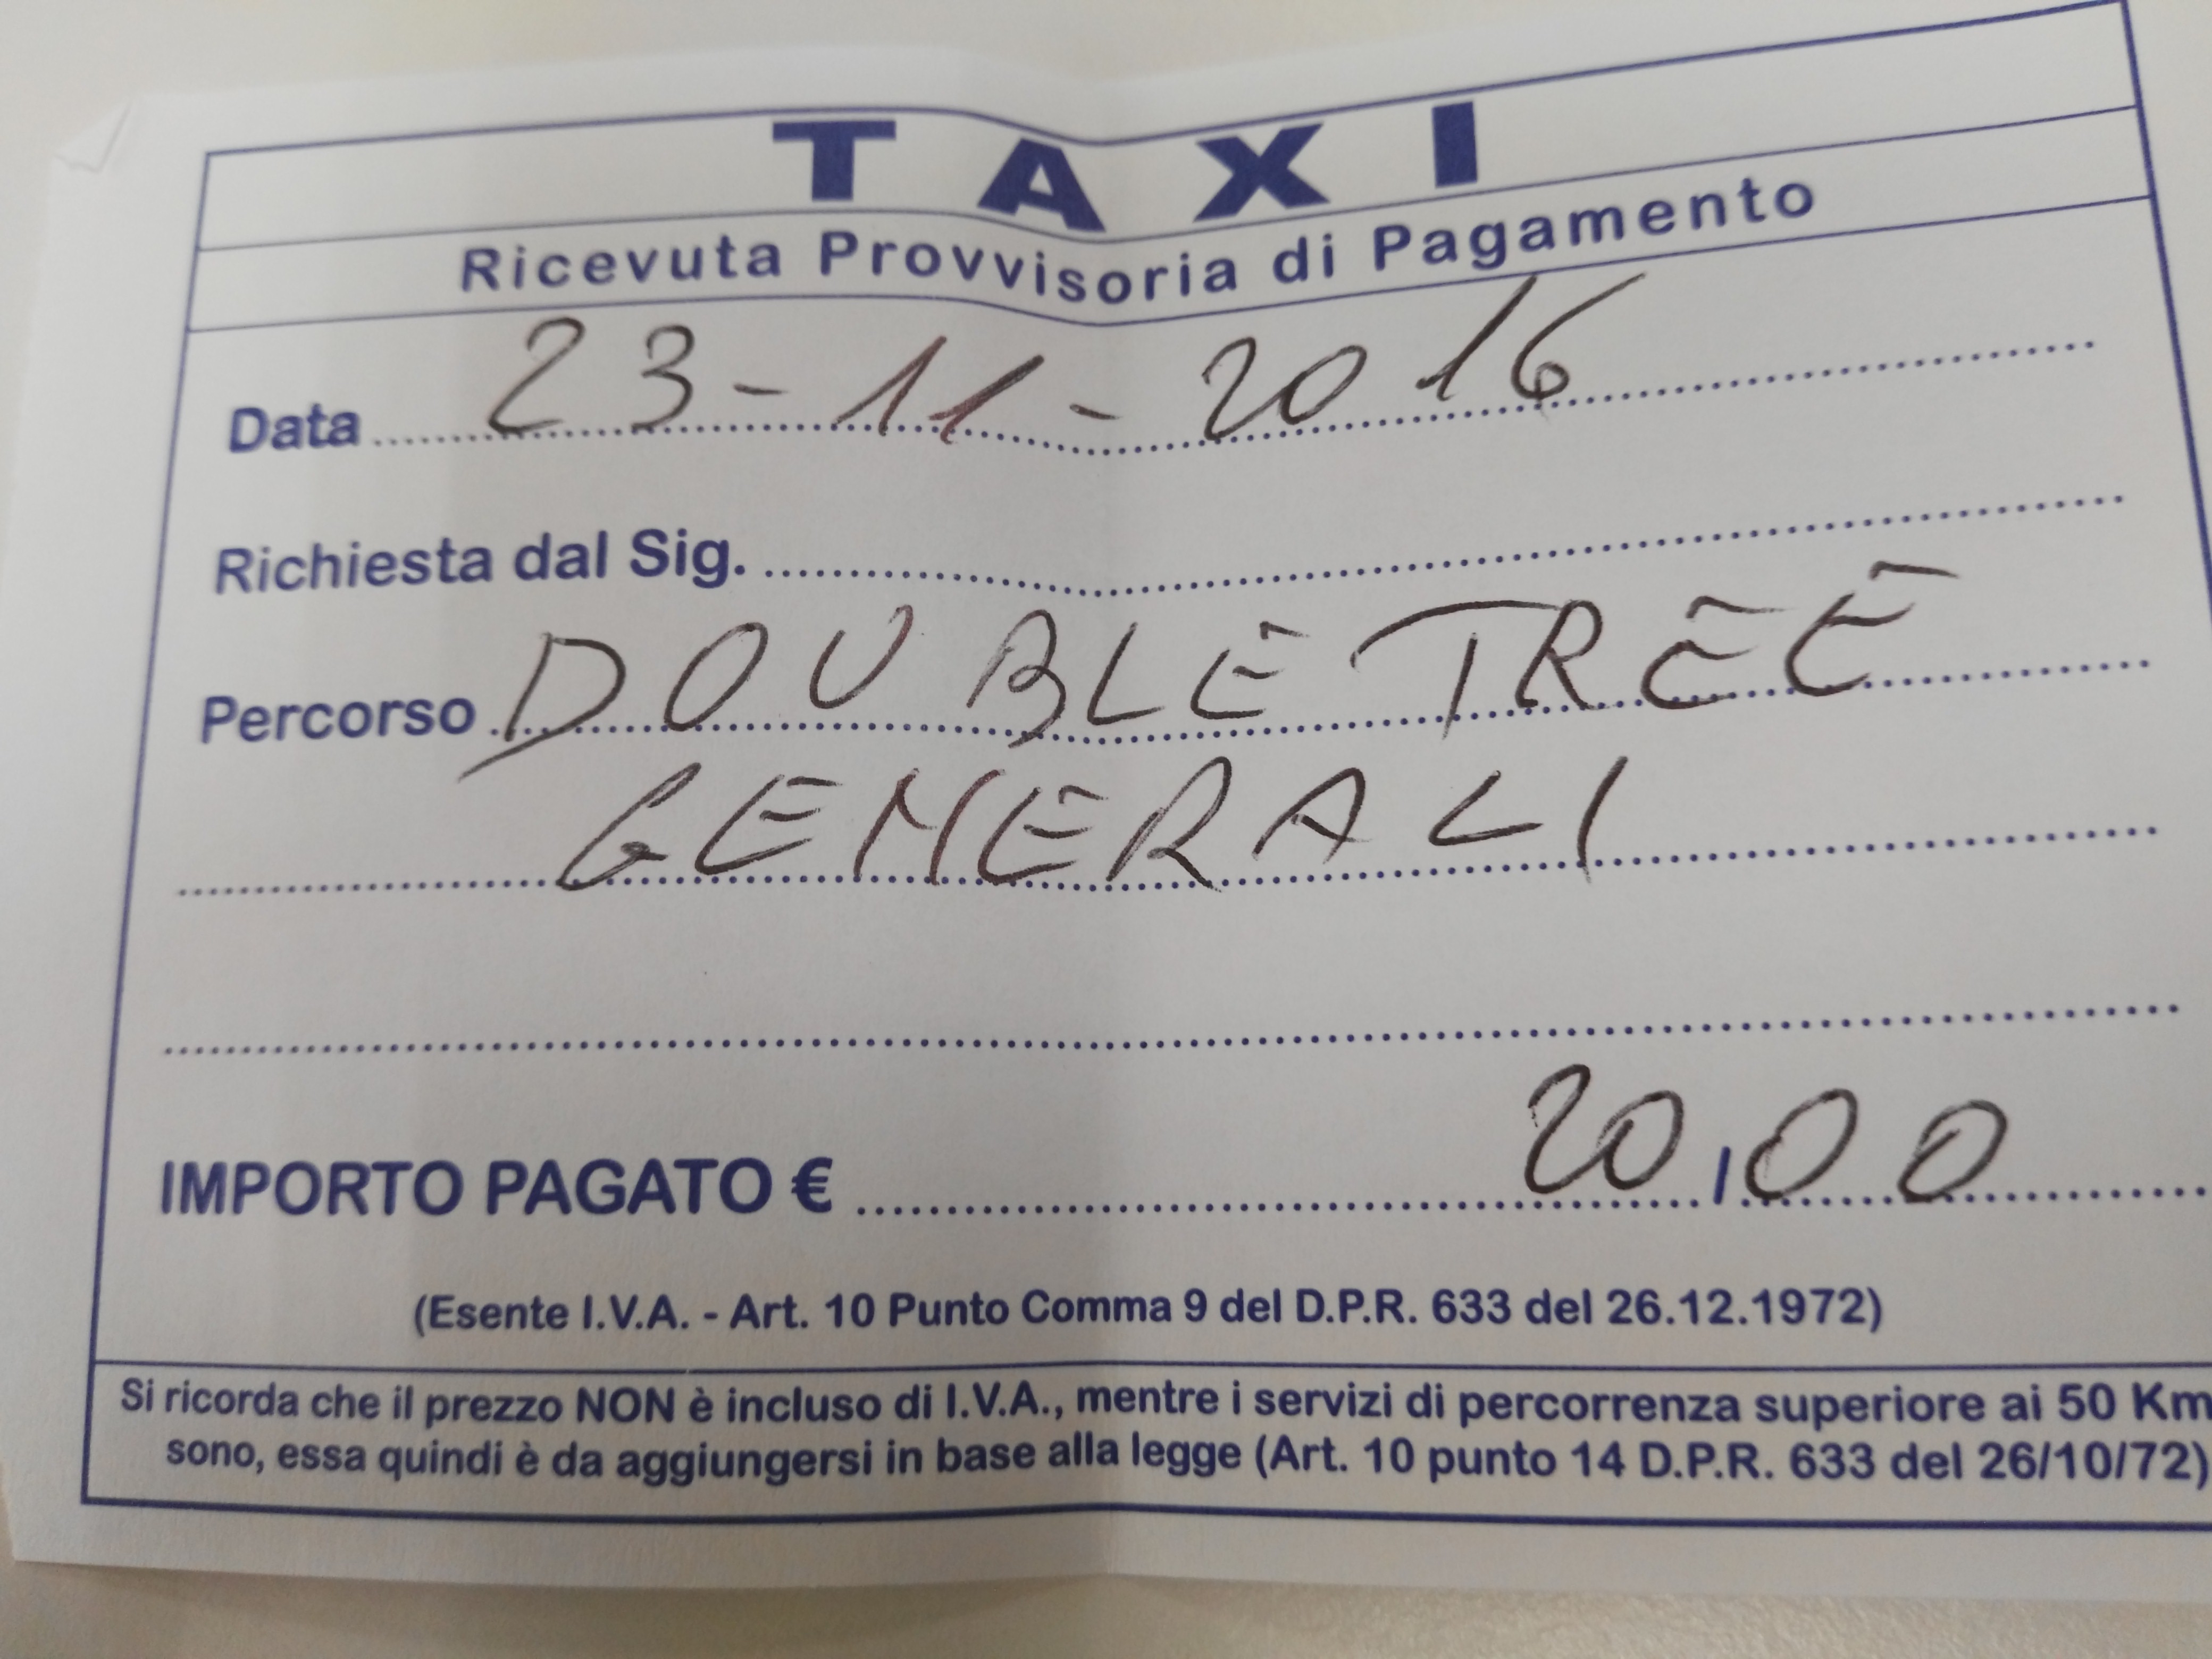 TAXI
Ricevuta Provvisoria di Pagamento
Data 23-11-2016
Richiesta dal Sig.
Percorso DOUBLETREE
GENERALI
IMPORTO PAGATO € 20,00
(Esente I.V.A. - Art. 10 Punto Comma 9 del D.P.R. 633 del 26.12.1972)
Si ricorda che il prezzo NON è incluso di I.V.A., mentre i servizi di percorrenza superiore ai 50 Km
sono, essa quindi è da aggiungersi in base alla legge (Art. 10 punto 14 D.P.R. 633 del 26/10/72)